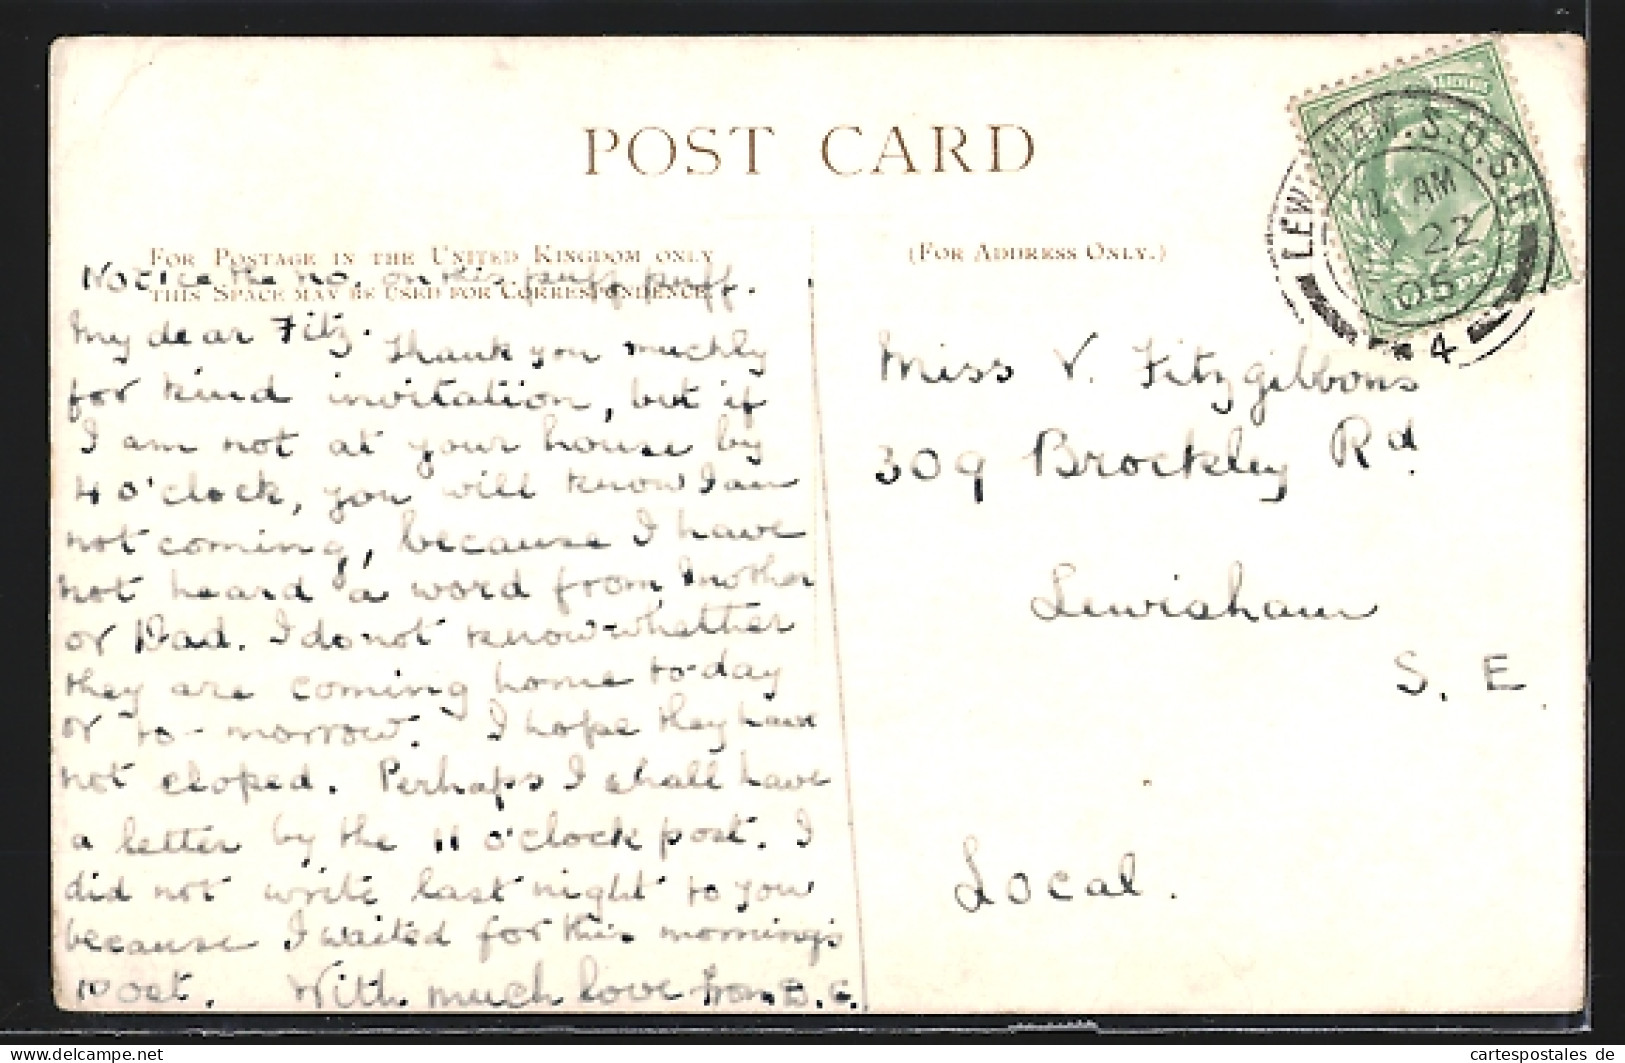 POST CARD
FOR POSTAGE IN THE UNITED KINGDOM ONLY
THIS SPACE MAY BE USED FOR CORRESPONDENCE.
(FOR ADDRESS ONLY.)
Notice the no. on this puff puff.
My dear Fitz. Thank you muchly
for kind invitation, but if
I am not at your house by
4 o'clock, you will know I am
not coming, because I have
not heard a word from Mother
or Dad. I do not know whether
they are coming home to-day
or to-morrow. I hope they have
not eloped. Perhaps I shall have
a letter by the 11 o'clock post. I
did not write last night to you
because I waited for this morning's
post. With much love from D. G.
Miss V. Fitzgibbons
309 Brockley Rd
Lewisham
S. E.
Local.
LEWISHAM.S.O.S.E
AM
22
05
4
cartespostales de
www.cartespostales.de